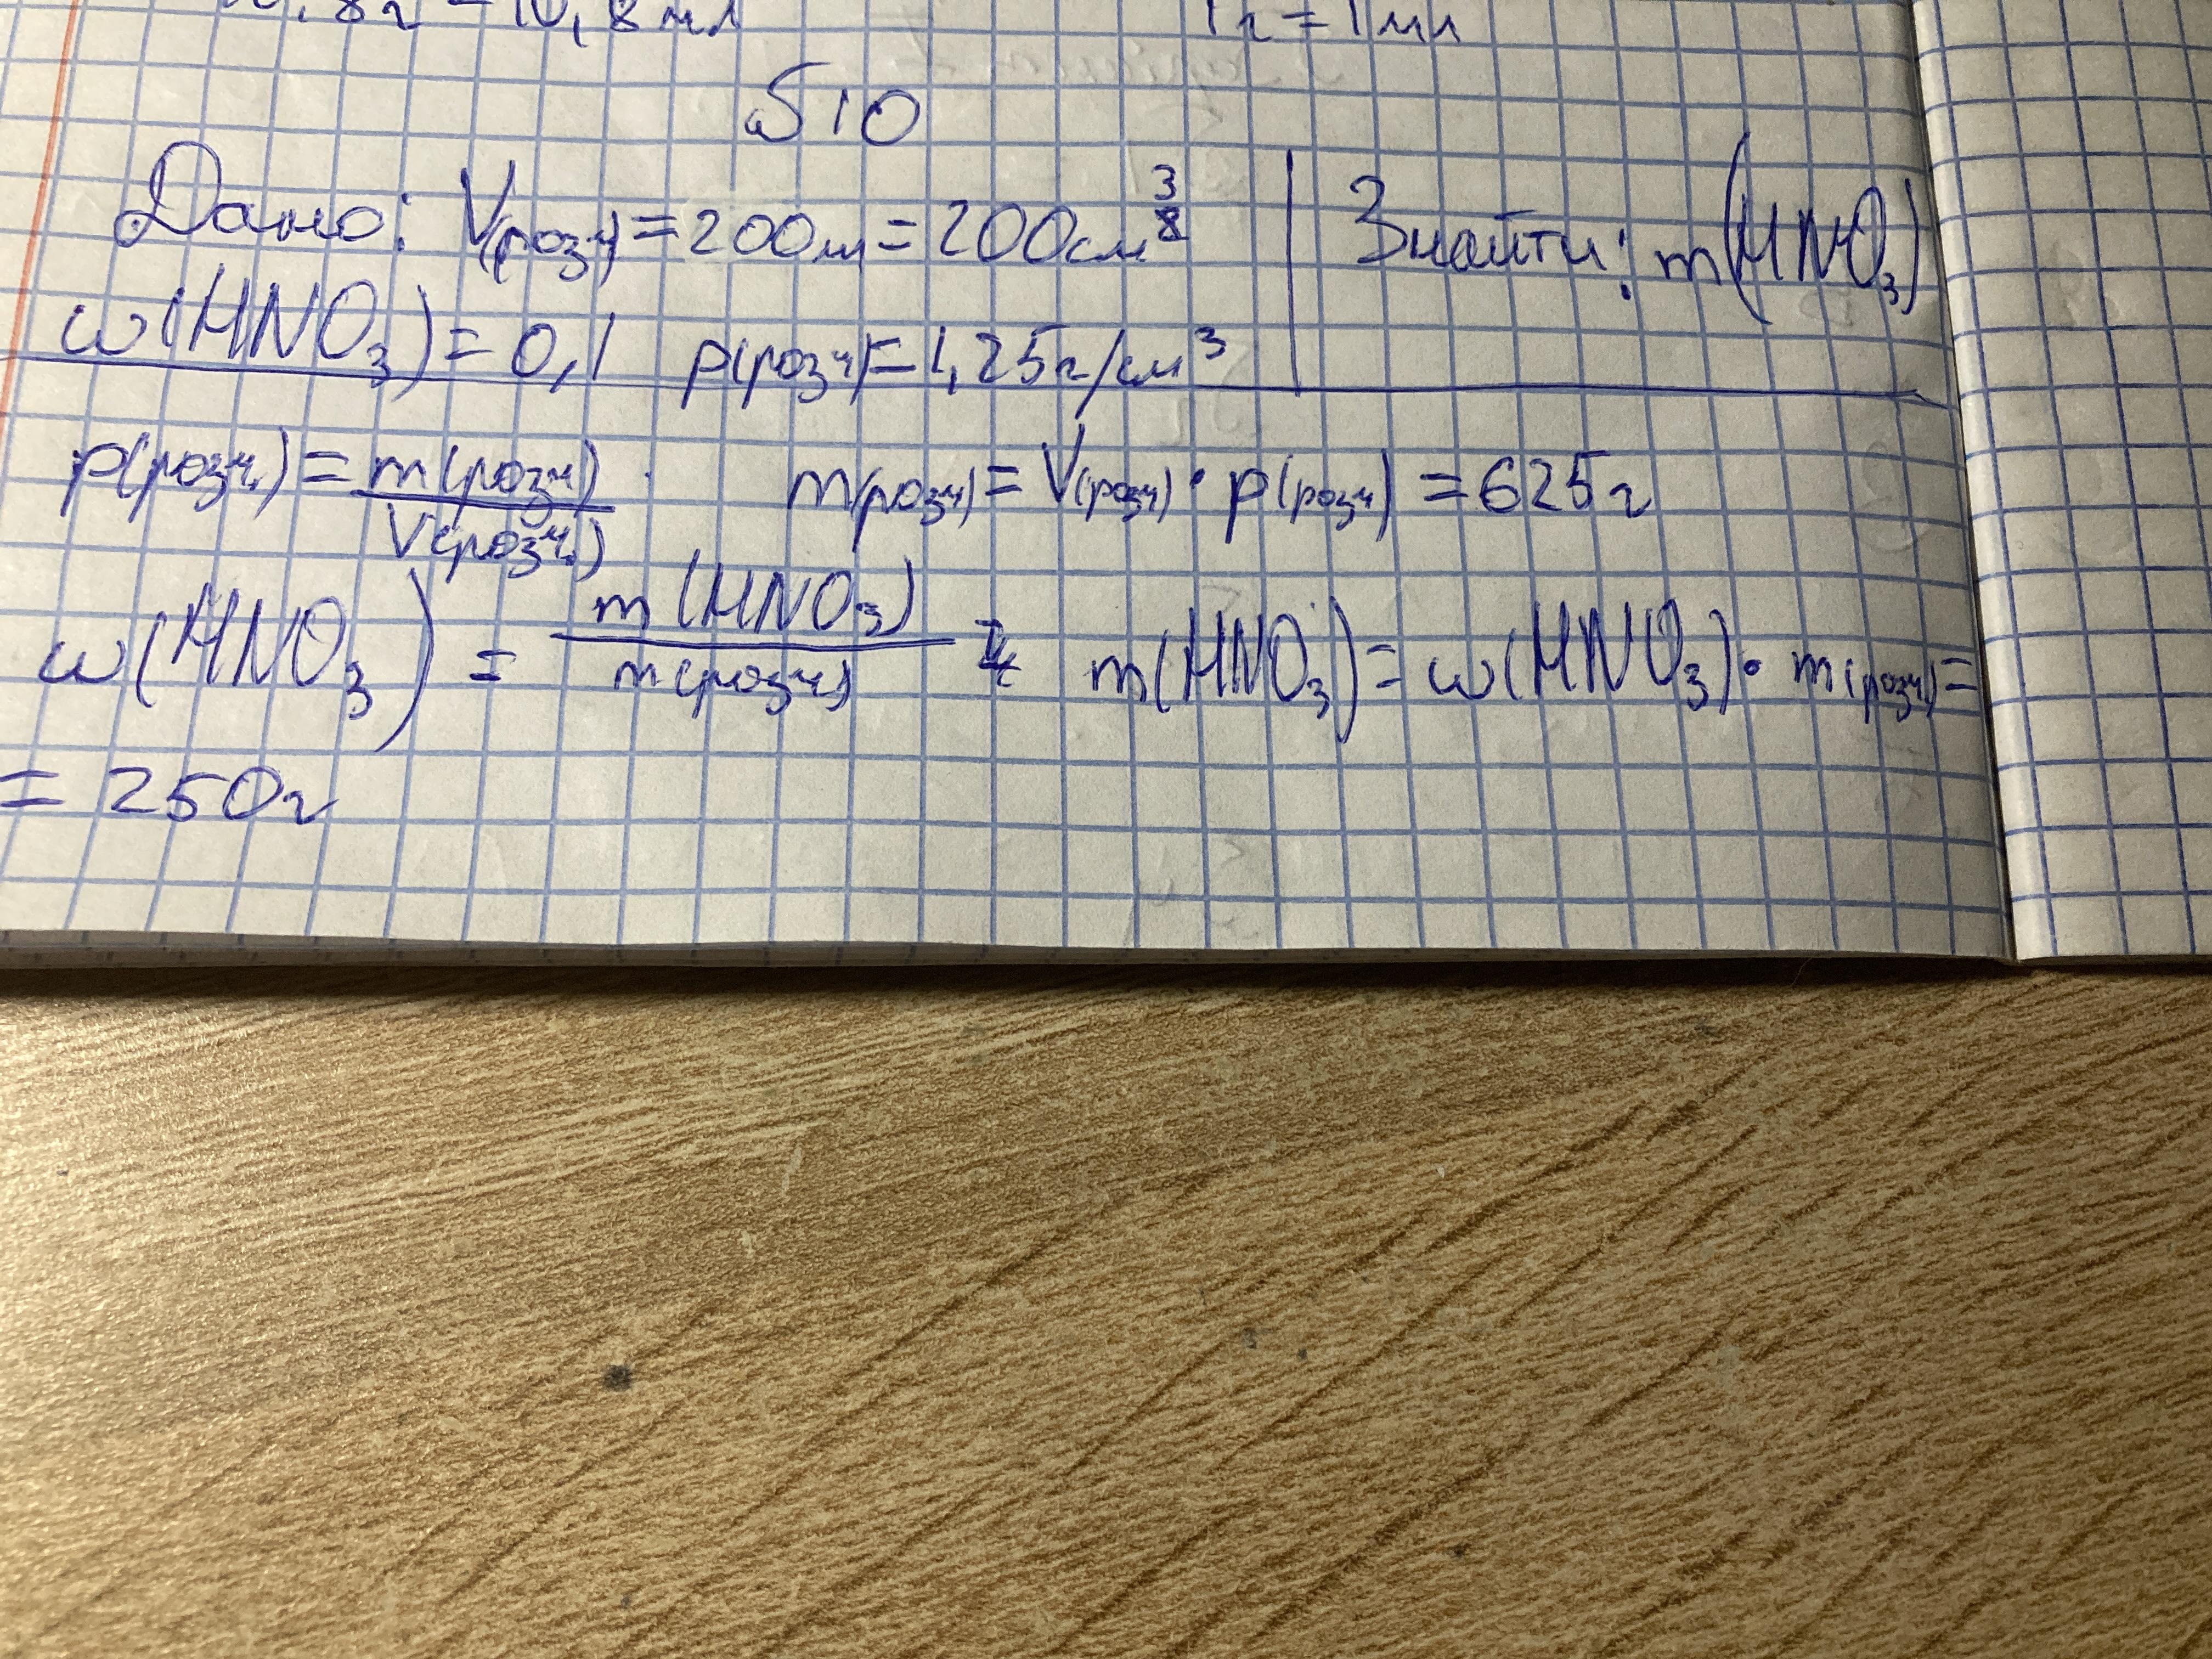 ,8г = 10,8мл 1г = 1мл
№10
Дано: V(розч) = 200мл = 200см³ | Знайти: m(HNO₃)
ω(HNO₃) = 0,1 ρ(розч) = 1,25г/см³
ρ(розч.) = m(розч) / V(розч.) m(розч) = V(розч) · ρ(розч) = 625г
ω(HNO₃) = m(HNO₃) / m(розч) m(HNO₃) = ω(HNO₃) · m(розч) =
= 250г